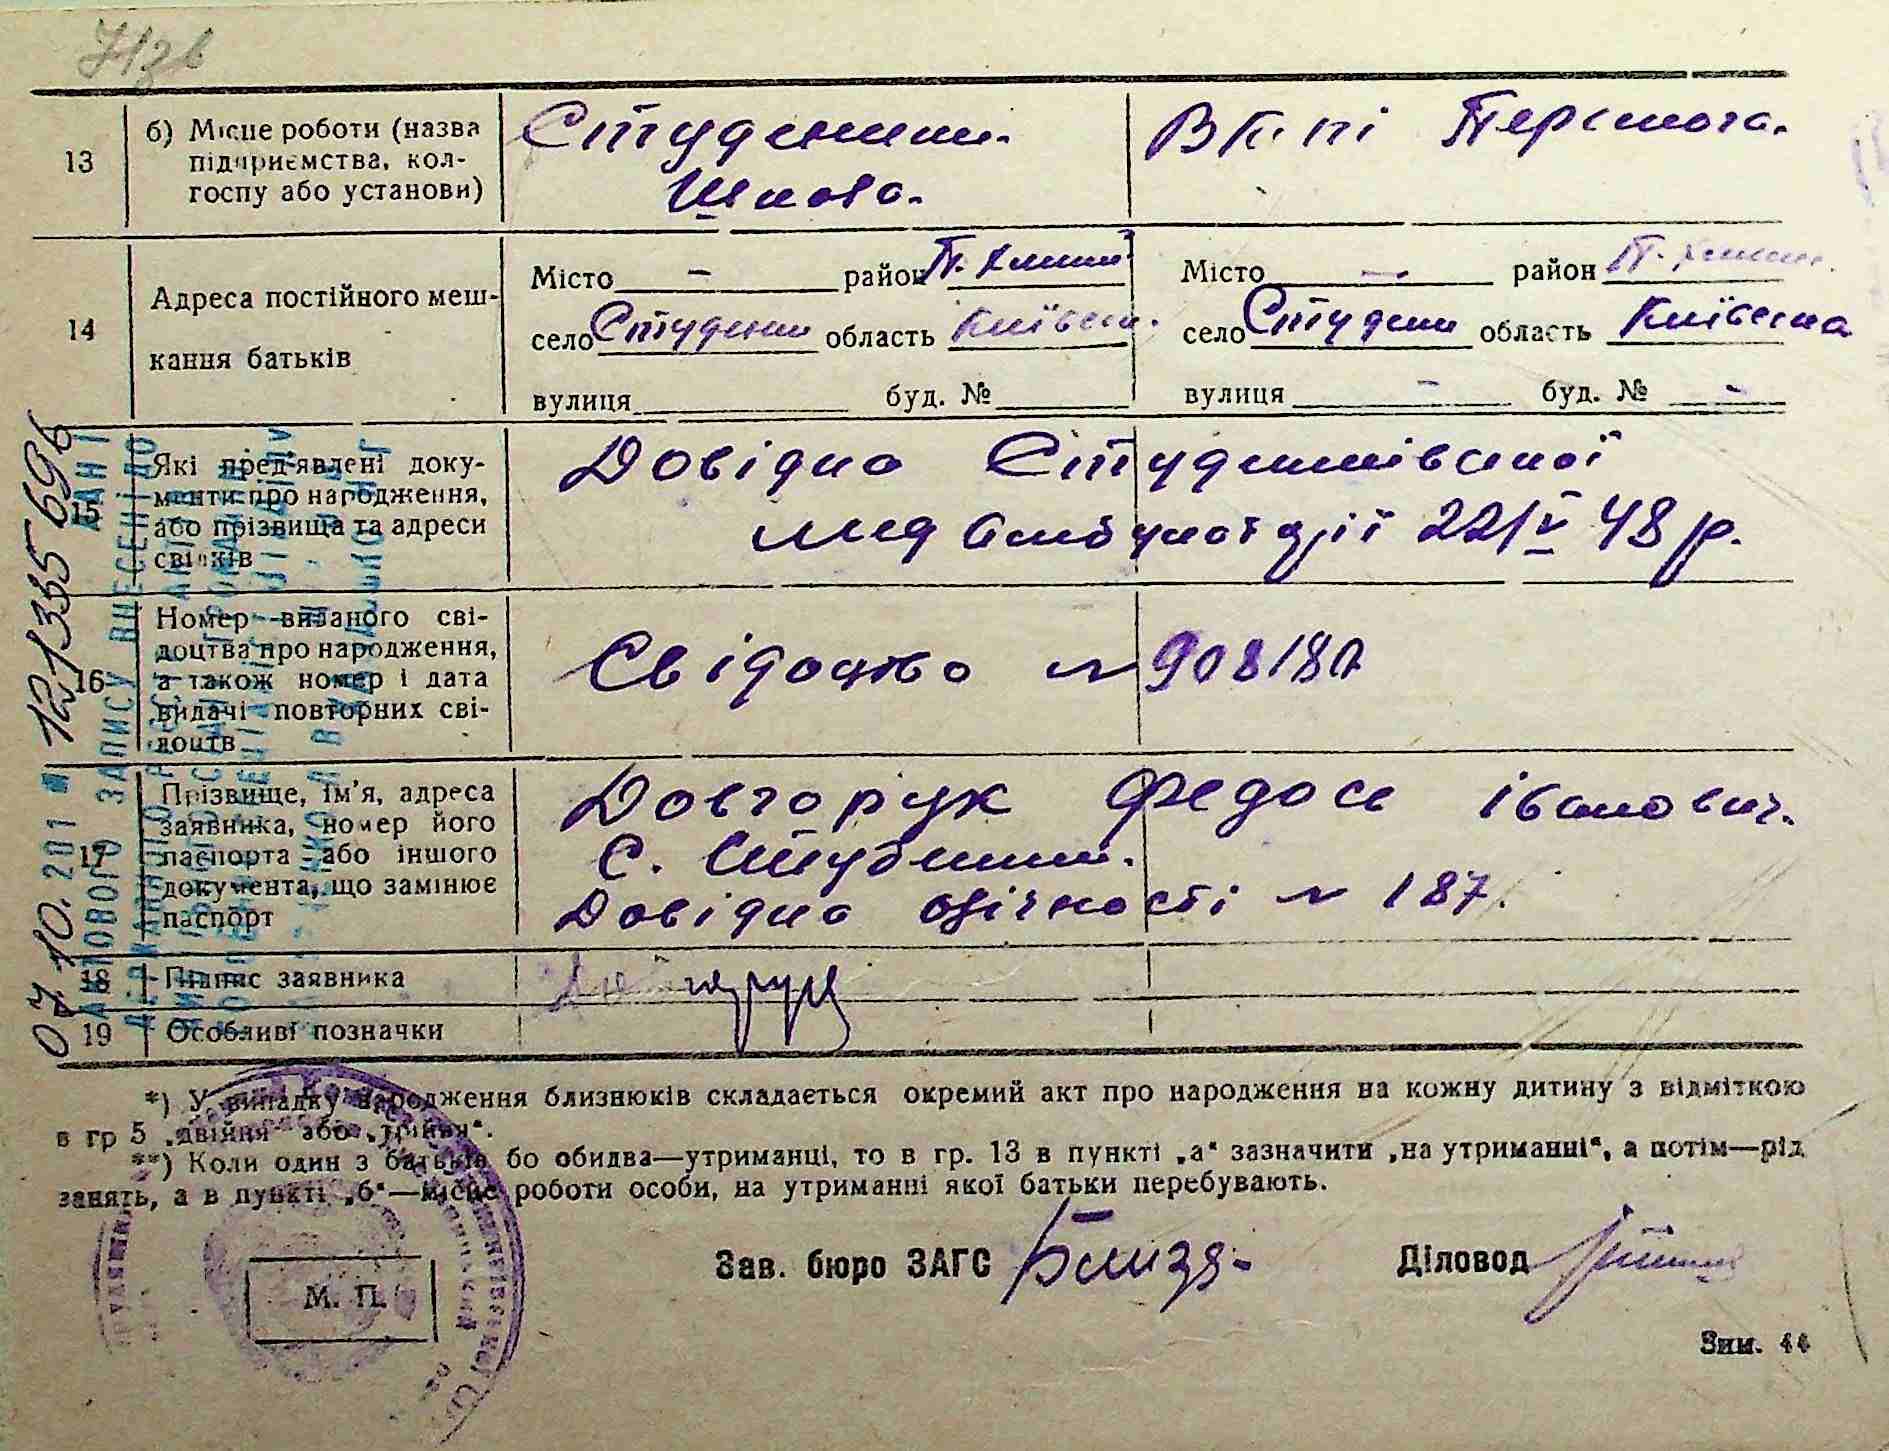 13
б) Місце роботи (назва підприємства, колгоспу або установи)
Студеники.
Школа.
В К-пі Перемога.
14
Адреса постійного мешкання батьків
Місто - район П. Хмельн
село Студеники область Київськ.
вулиця буд. №
Місто - район П. Хмельн.
село Студени область Київська
вулиця - буд. № -
15
Які пред'явлені документи про народження, або прізвища та адреси свідків
Довідка Студениківської
мед амбулаторії 22/V 48 р.
16
Номер виданого свідоцтва про народження, а також номер і дата видачі повторних свідоцтв
Свідоцтво № 908180
17
Прізвище, ім'я, адреса заявника, номер його паспорта або іншого документа, що замінює паспорт
Довгорук Федось Іванович.
С. Студеники.
Довідка особності № 187.
18
Підпис заявника
Довгорук
19
Особливі позначки
*) У випадку народження близнюків складається окремий акт про народження на кожну дитину з відміткою
в гр 5 „двійня“ або „трійня“.
**) Коли один з батьків бо обидва—утриманці, то в гр. 13 в пункті „а“ зазначити „на утриманні“, а потім—рід
занять, а в пункті „б“—місце роботи особи, на утриманні якої батьки перебувають.
Зав. бюро ЗАГС
Діловод
М. П.
Зим. 44
07.10.201
121335696
АКТОВОГО ЗАПИСУ ВНЕСЕНІ ДО